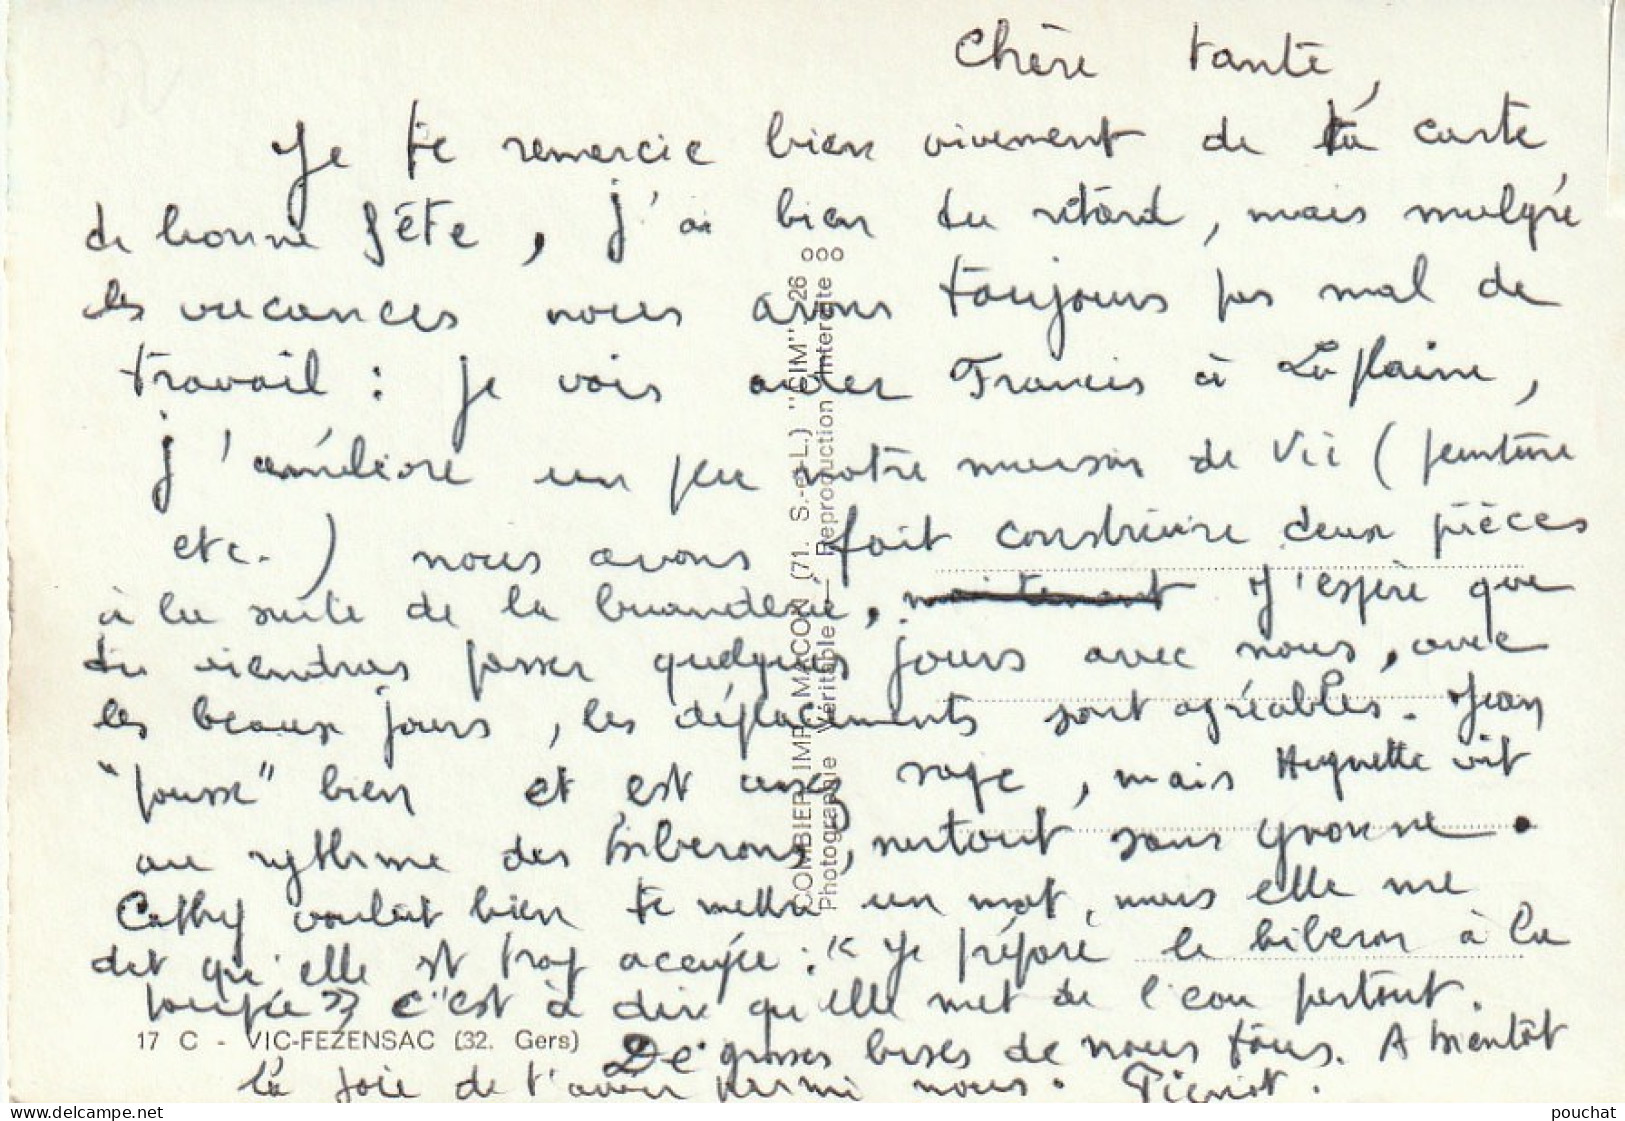 Chère tante,
Je te remercie bien vivement de ta carte
de bonne fête, j'ai bien du retard, mais malgré
les vacances nous avons toujours pas mal de
travail : je vais aider Francis à Laplaine,
j'améliore un peu notre maison de Vic (peinture
etc.) nous avons fait construire deux pièces
à la suite de la buanderie, maintenant J'espère que
tu viendras passer quelques jours avec nous, avec
les beaux jours, les déplacements sont agréables. Jean
"pousse" bien et est assez sage, mais Huguette vit
au rythme des biberons, surtout sans Yvonne.
Cathy voulait bien te mettre un mot, mais elle me
dit qu'elle est trop occupée : "Je prépare le biberon à la
poupée" c'est à dire qu'elle met de l'eau partout.
De grosses bises de nous tous. A bientôt
la joie de t'avoir parmi nous. Pierrot.
17 C - VIC-FEZENSAC (32. Gers)
COMBIER IMP. MACON (71. S.-et-L.) "CIM" 26 ooo
Photographie Véritable — Reproduction Interdite
www.delcampe.net
pouchat